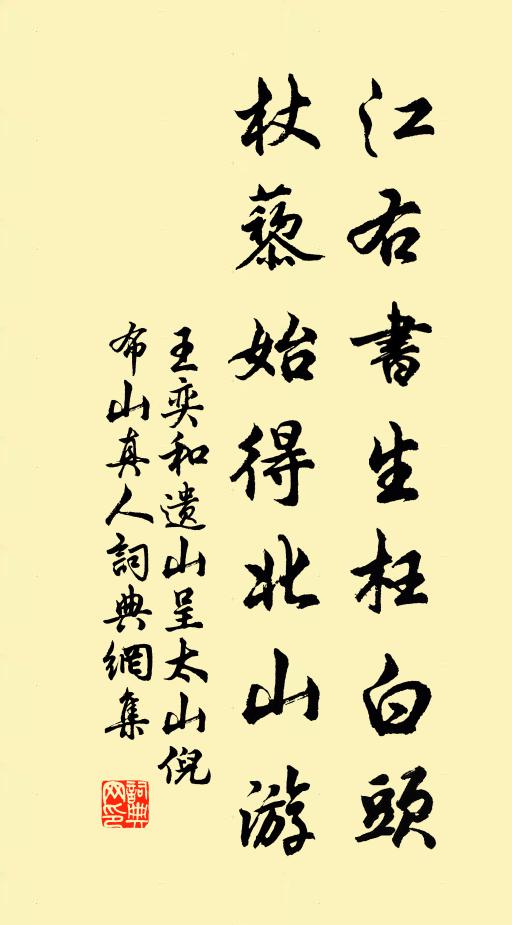 江右書生枉白頭
杖藜始得北山游
王奕和遺山呈太山倪
布山真人詞典網集
詞典
网印